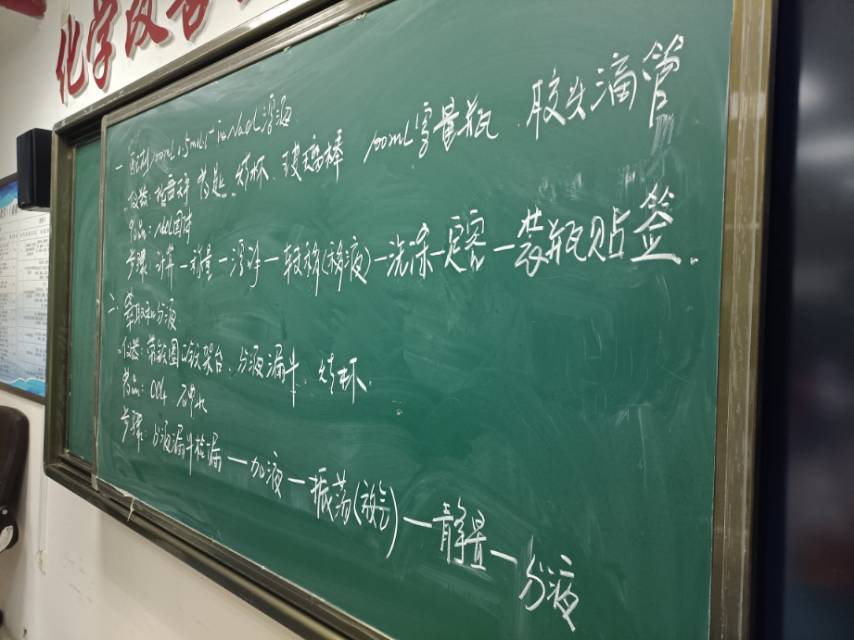 化学改善
一 配制100mL 1.5mol/L NaOH溶液
仪器: 托盘天平 药匙、烧杯、玻璃棒 100mL容量瓶、胶头滴管
药品: NaOH固体
步骤: 计算—称量—溶解—转移(移液)—洗涤—定容—装瓶贴签.
二、萃取和分液
仪器: 带铁圈的铁架台、分液漏斗、烧杯.
药品: CCl4 碘水
步骤: 分液漏斗检漏—加液—振荡(放气)—静置—分液